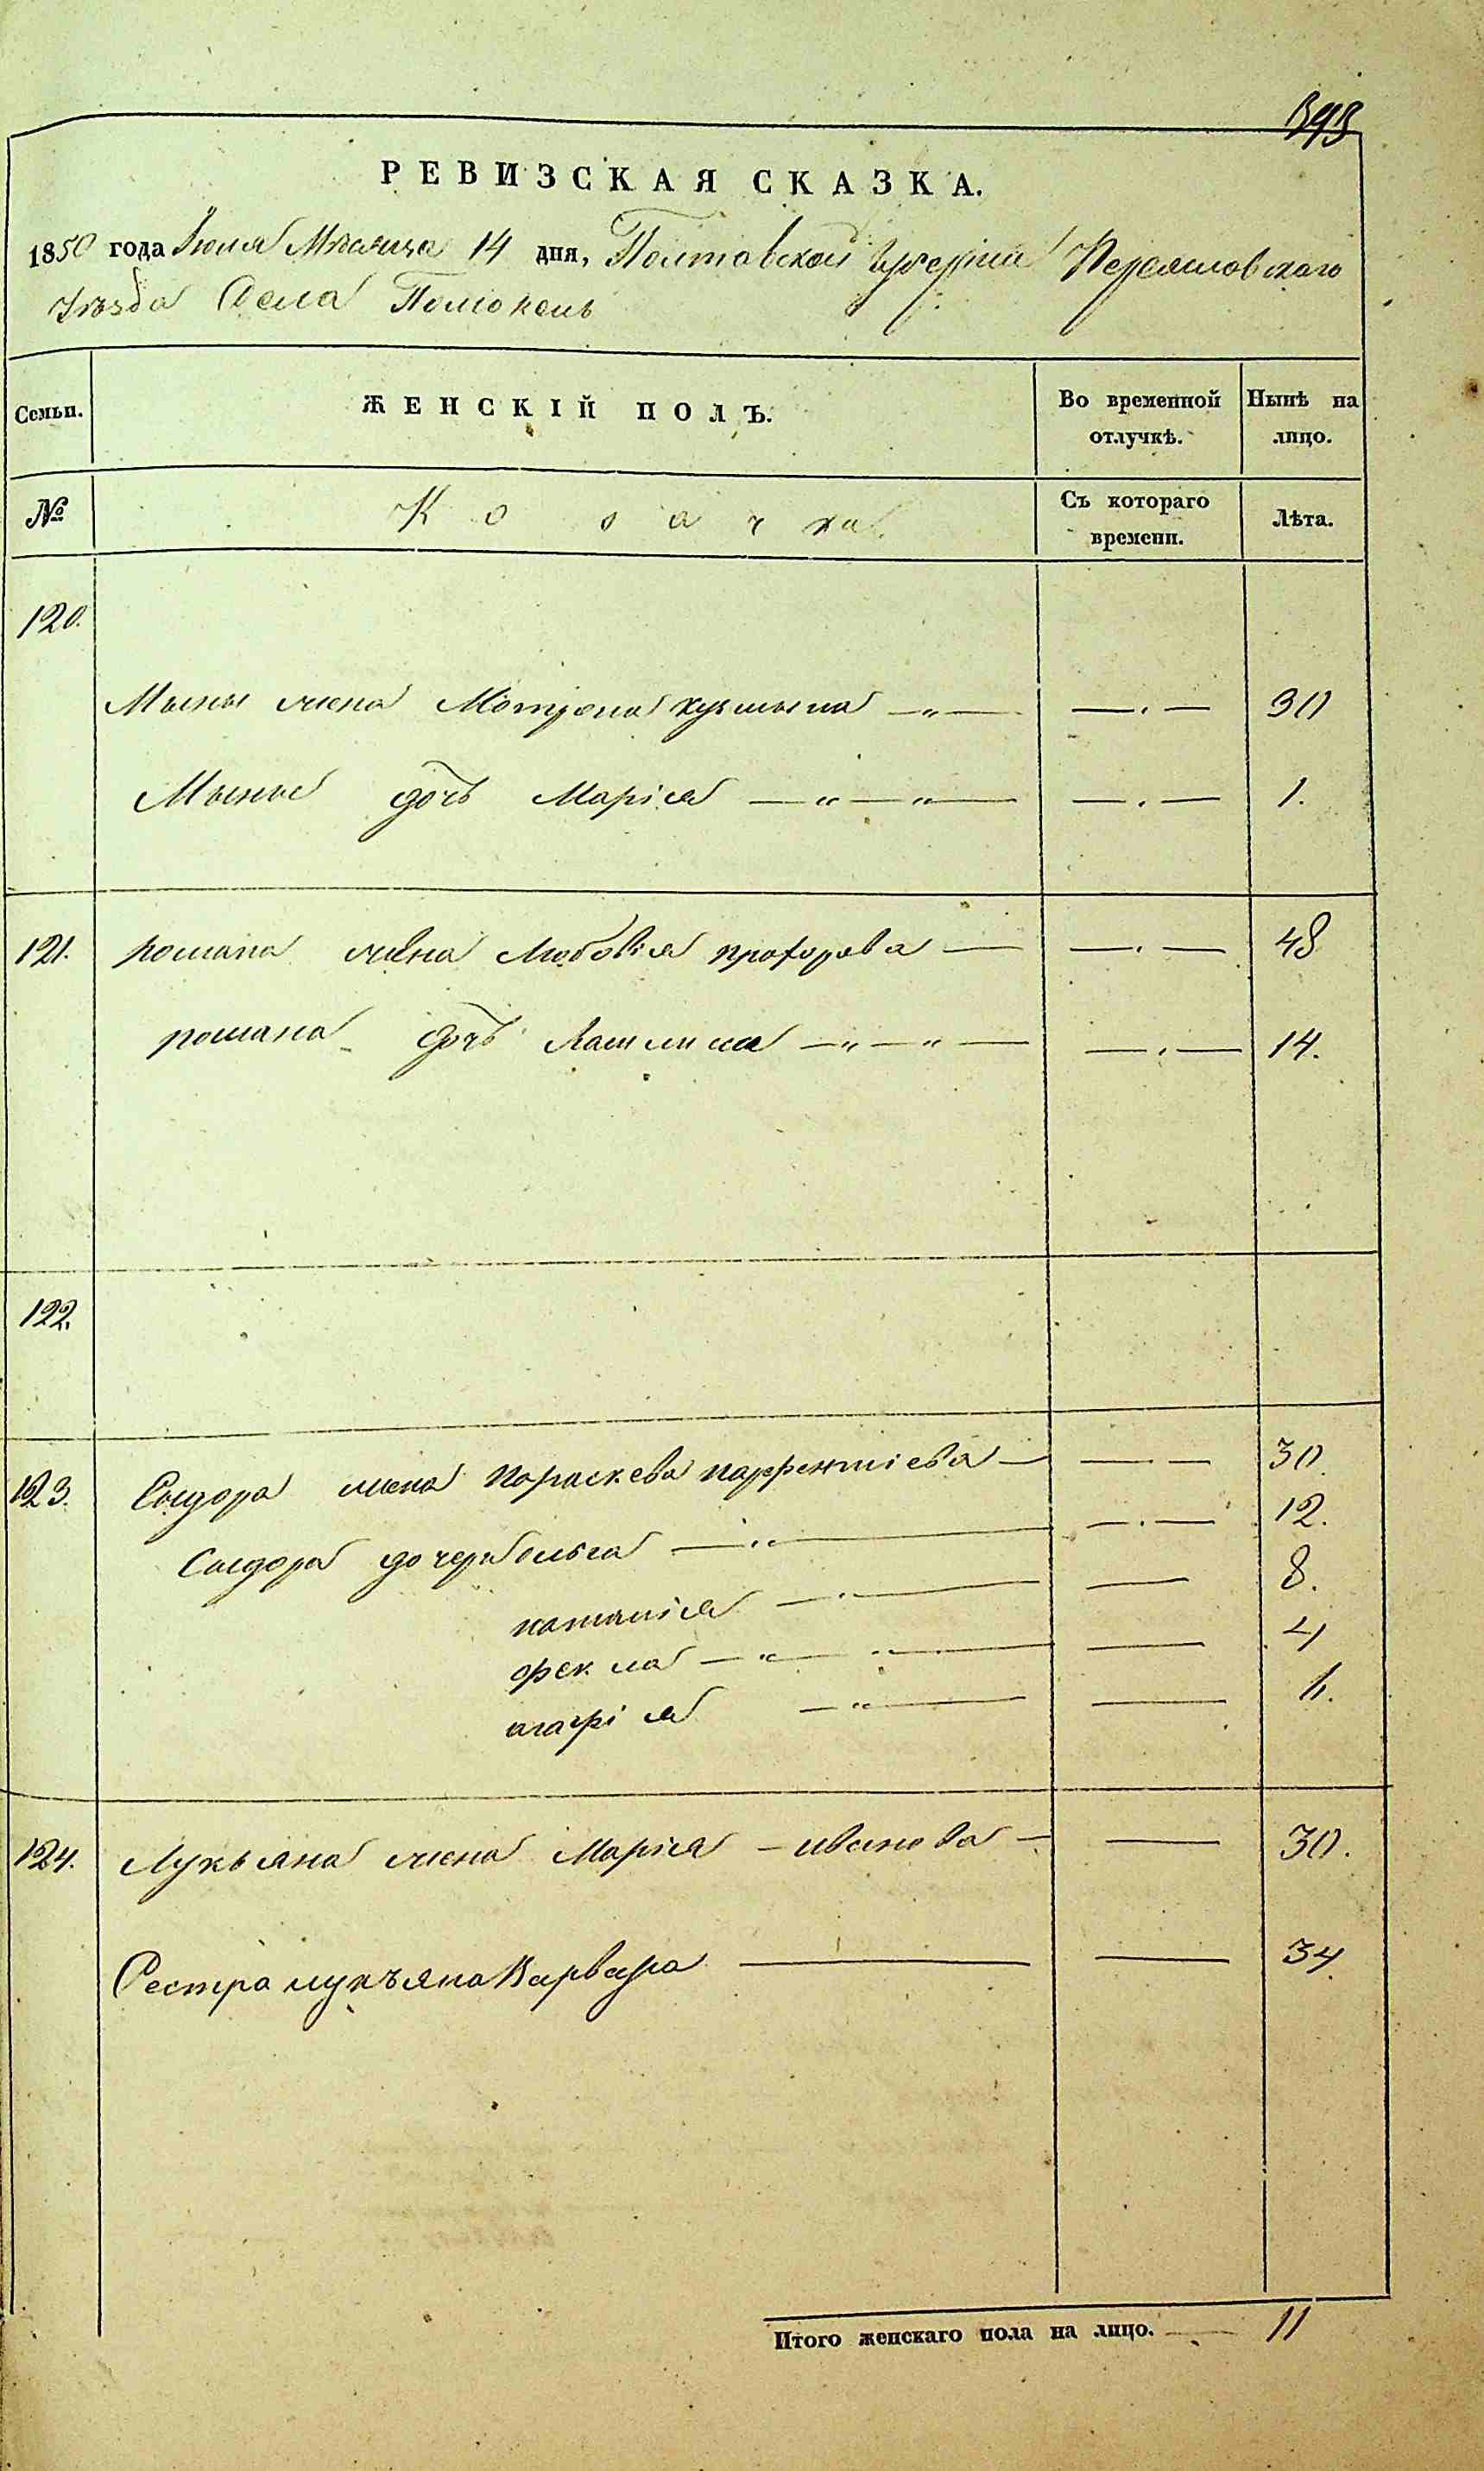 РЕВИЗСКАЯ СКАЗКА.
1850 года Іюля Мѣсяца 14 дня, Полтавской Губерніи Переяславского
Уѣзда Села Помокель
Семьи. ЖЕНСКІЙ ПОЛЪ. Во временной отлучкѣ. Нынѣ на лицо.
№ Козачка Съ котораго времени. Лѣта.
120.
Мыны жена Мотрона кузмына — „ — — . — 30
Мыны дочь Марія — „ — „ — — . — 1.
121. романа жена Любовія прохорова — — . — 48
романа дочь — „ — „ — — . — 14.
122.
123. Сыдора жена Параскева парфентіева — — . — 30.
Сыдора дочери ольга — „ — — . — 12.
наталія — „ — — 8.
фекла — „ — „ — — 4
агафія — „ — —
124. Лукьяна жена Марія — иванова — — 30.
Сестра лукъяна Варвара — — 34
Итого женскаго пола на лицо. — 11